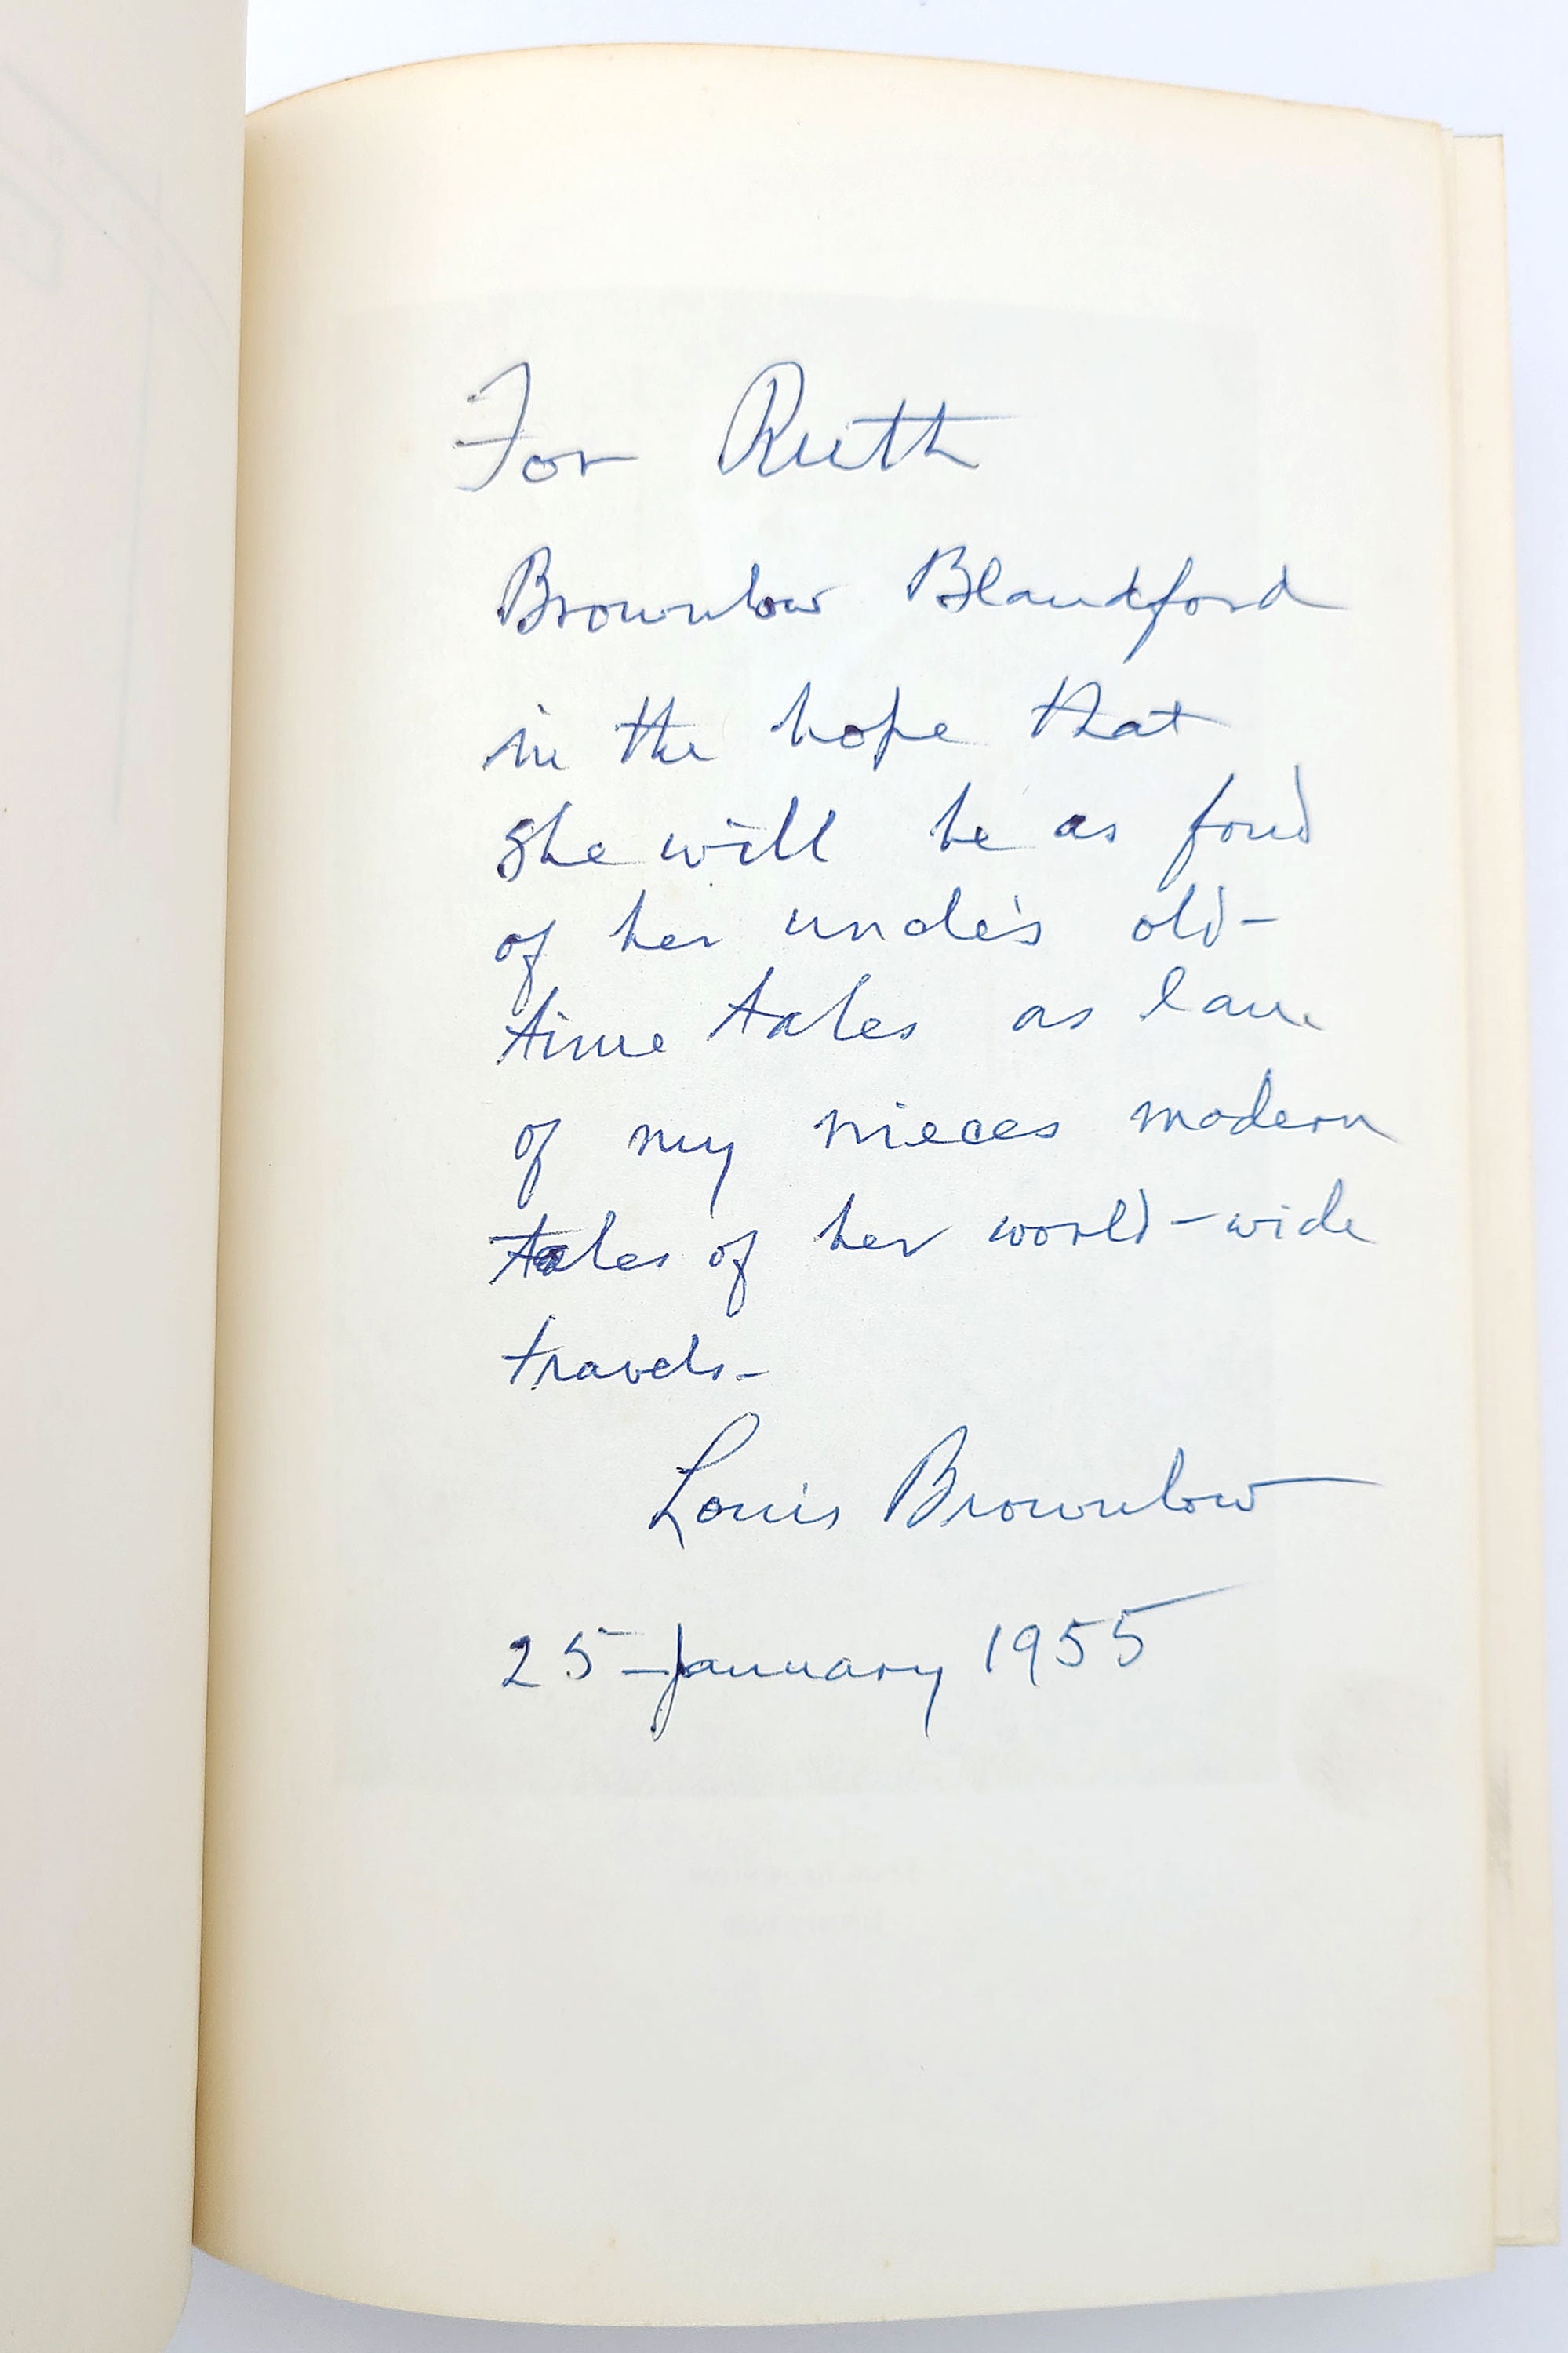 For Ruth
Brownlow Blandford
in the hope that
She will be as fond
of her uncle's old-
time tales as I am
of my nieces modern
tales of her world-wide
travels-
Louis Brownlow
25-January 1955